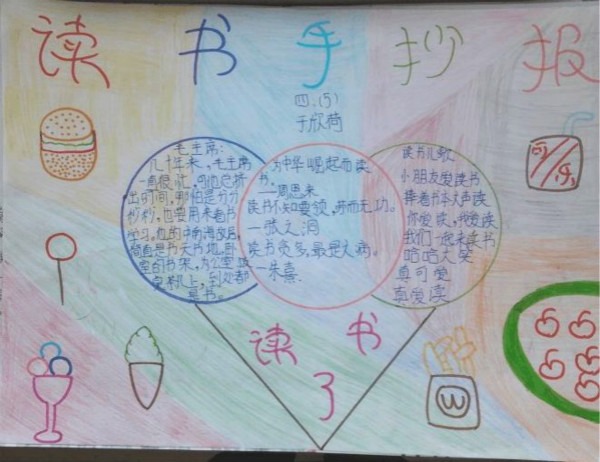 读书手抄报
四.(5)
于欣荷
毛主席:
几十年来,毛主席
一直很忙,可他总挤
出时间,哪怕是分分
秒秒,也要用来看书
学习。他的中南海故居,
简直是书天书地,卧
室的书架,办公室,饭
桌茶几上,到处都
是书。
为中华崛起而读
书。
—周恩来
读书不知要领,劳而无功。
—张之洞
读书贪多,最是大病。
—朱熹
读书儿歌
小朋友爱读书
捧着书本大声读
你爱读,我爱读
我们一起来读书
哈哈大笑
真可爱
享爱读
可乐
读书
了
W